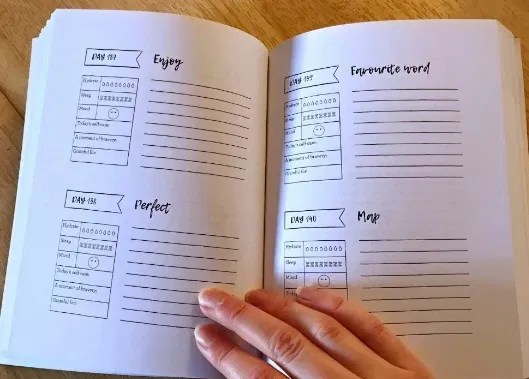 DAY 137
Enjoy
Hydrate
Sleep
Mood
Today's self-care
A moment of bravery
Grateful for
DAY 138
Perfect
Hydrate
Sleep ZZZZZZZZ
Mood
Today's self-care
A moment of bravery
Grateful for
DAY 139
Favourite word
Hydrate
Sleep ZZZZZZZZ
Mood
Today's self-care
A moment of bravery
Grateful for
DAY 140
Map
Hydrate
Sleep ZZZZZZZZ
Mood